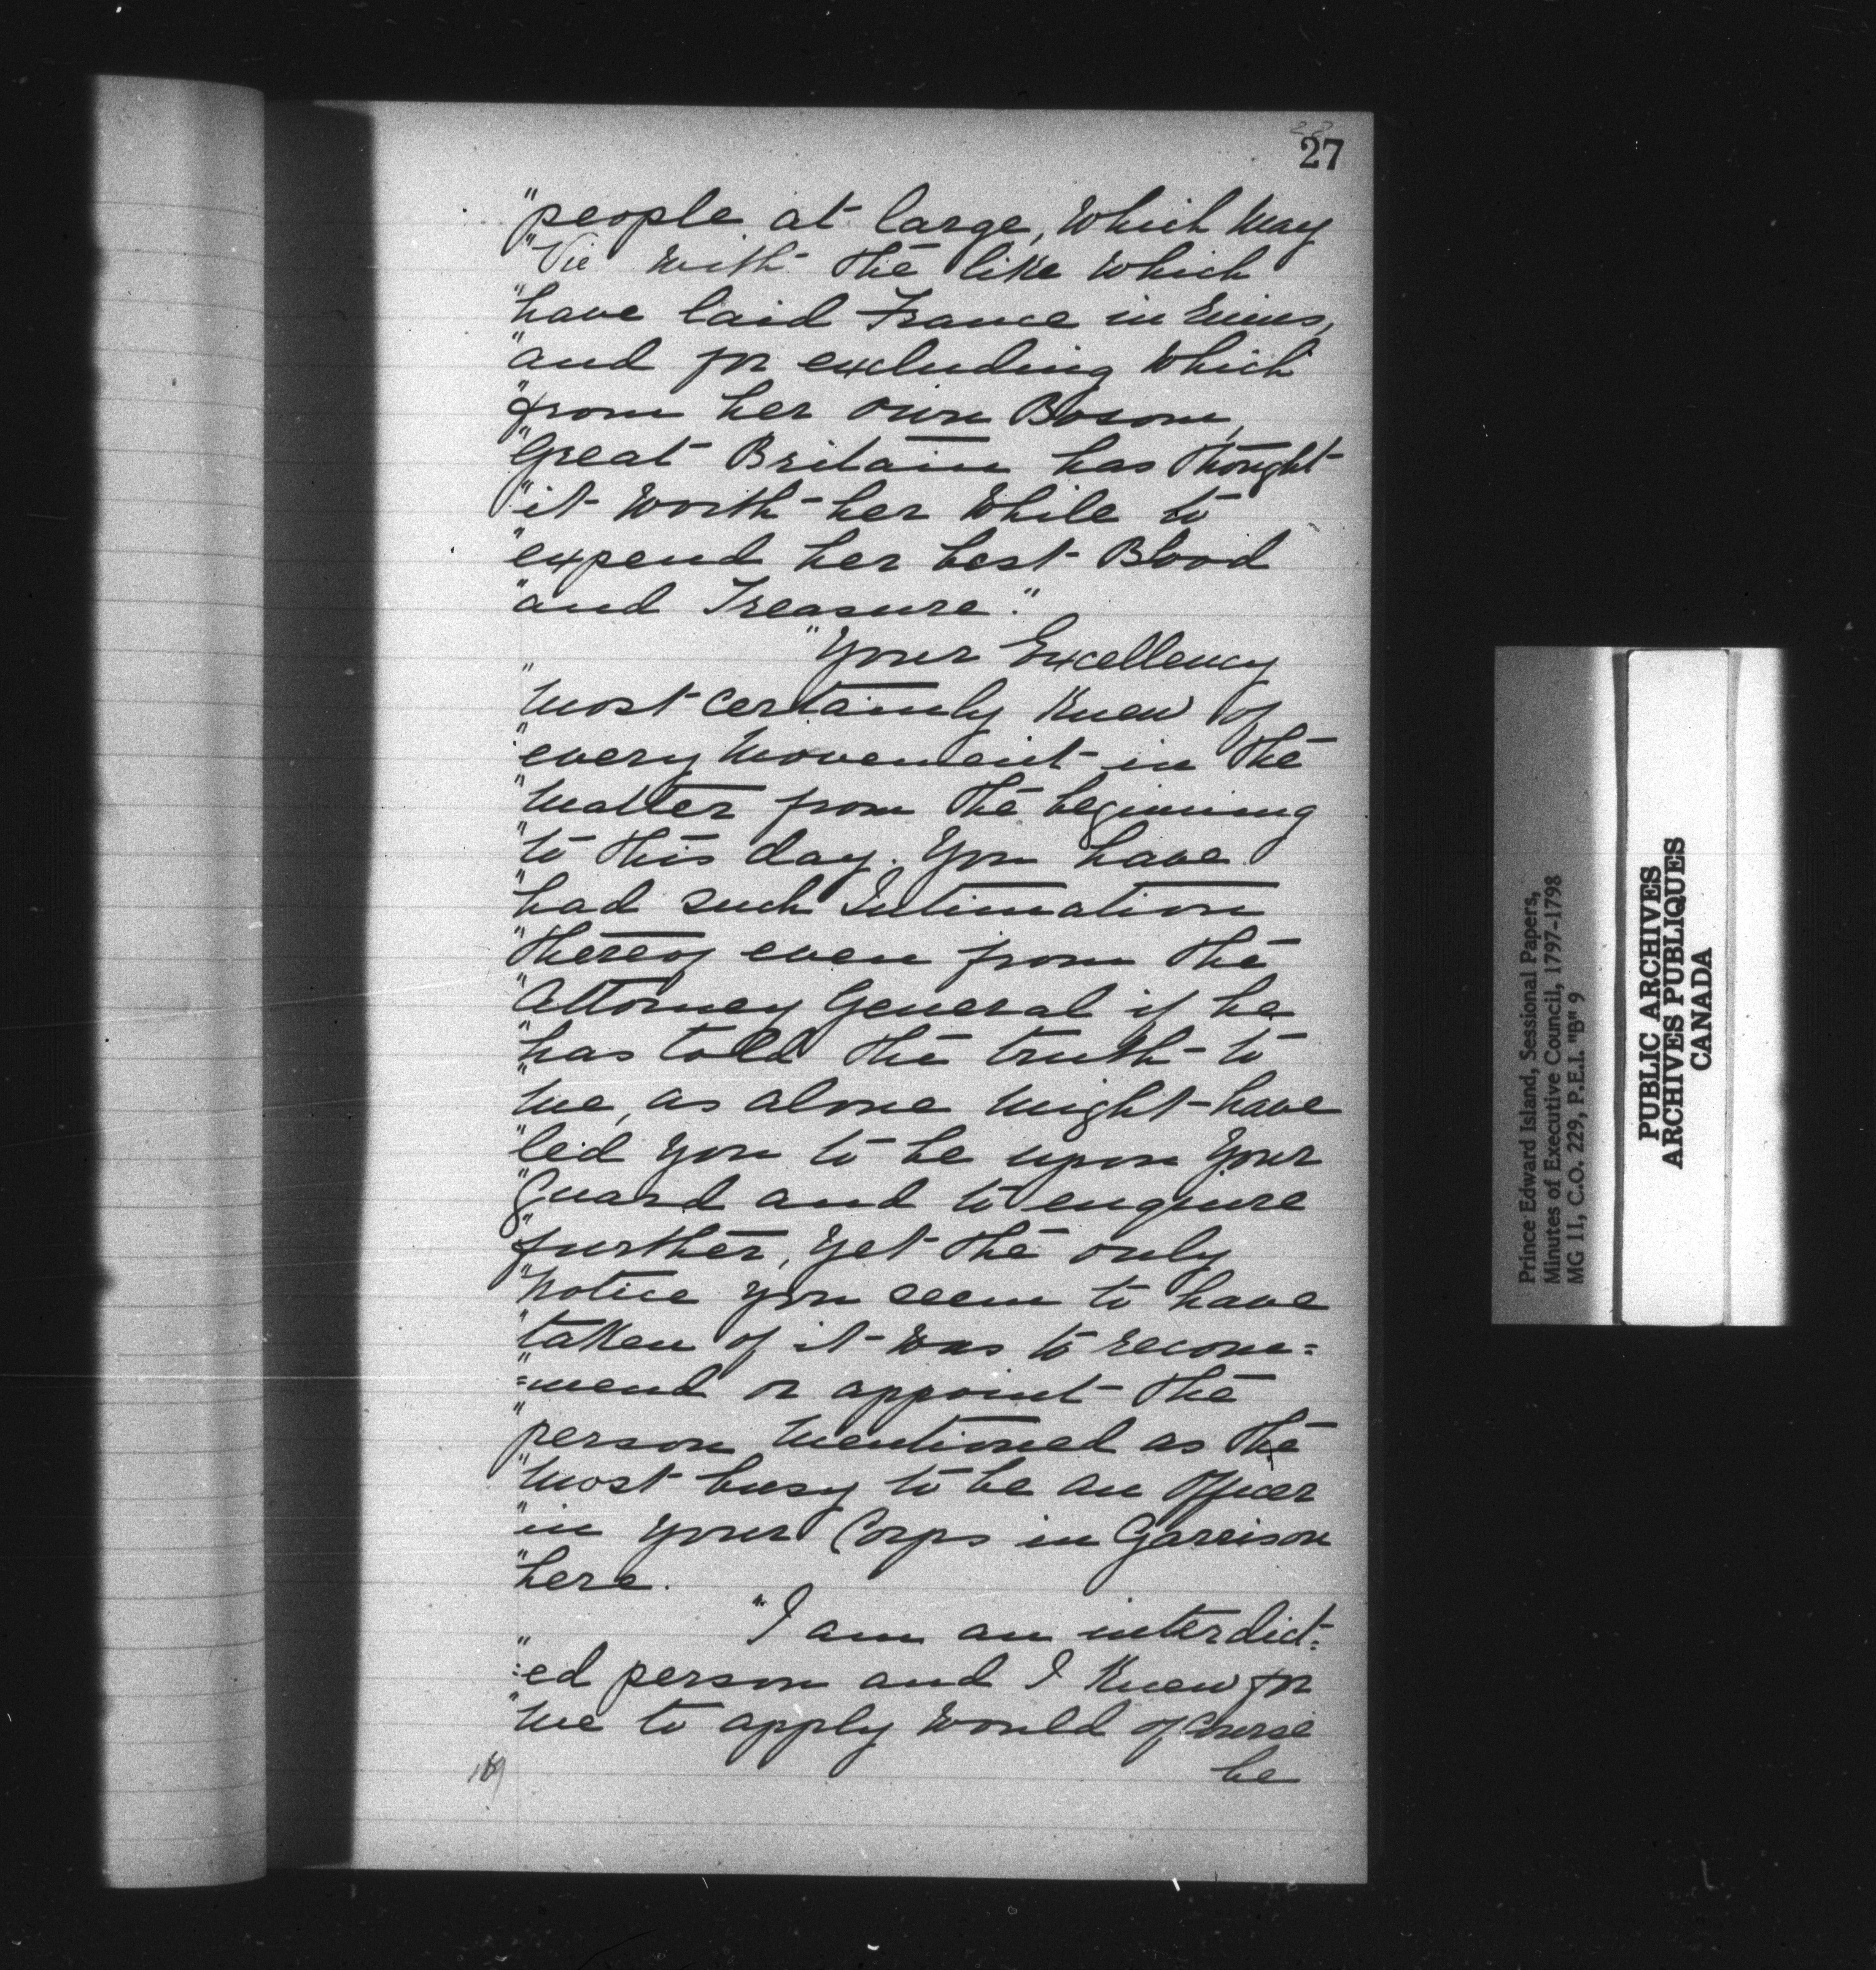 27
"people at large, which may
"Vie with the like which
"have laid France in ruins,
"and for excluding which
"from her own Bosom,
"Great Britain has thought
"it worth her while to
"expend her best Blood
"and Treasure."
"Your Excellency
"most certainly knew of
"every movement in the
"matter from the beginning
"to this day. You have
"had such Intimation
"thereof even from the
"Attorney General if he
"has told the truth to
"me, as alone might have
"led you to be upon your
"guard and to enquire
"further, yet the only
"notice you seem to have
"taken of it was to recom=
"=mend or appoint the
"person mentioned as the
"most busy to be an officer
"in your Corps in Garrison
"here.
"I am an interdict=
"=ed person and I knew for
"me to apply would of course
be
Prince Edward Island, Sessional Papers,
Minutes of Executive Council, 1797-1798
MG 11, C.O. 229, P.E.I. "B" 9
PUBLIC ARCHIVES
ARCHIVES PUBLIQUES
CANADA